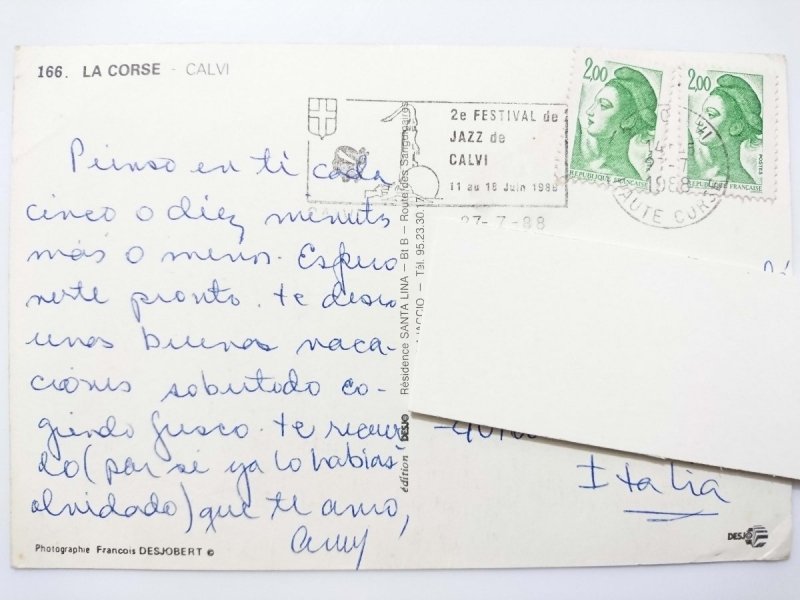 166. LA CORSE - CALVI
Pienso en ti cada
cinco o diez minutos
más o menos. Espero
verte pronto. te deseo
unas buenas vaca-
ciones sobretodo co-
giendo fresco. te recuer
do (por si ya lo habías
olvidado) que te amo,
Photographie Francois DESJOBERT ©
édition DESJO Résidence SANTA LINA - Bt B - Route des Sanguinaires
AJACCIO - Tél. 95.23.30.17
2e FESTIVAL de
JAZZ de
CALVI
11 au 18 Juin 1988
27-7-88
2,00
REPUBLIQUE FRANCAISE
2,00
POSTES
REPUBLIQUE FRANCAISE
27-7
1988
HAUTE CORSE
Italia
DESJO